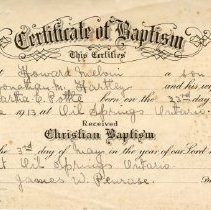 Certificate of Baptism
This Certifies
t Howard Melvin a son
Jonathan M. Hartley and his w
artha E. Potte born on the 23rd day
e 1913 at Oil Springs Ontario
Received
Christian Baptism
the 3rd day of May in the year of our Lord
at Oil Springs Ontario
James W. Penrose